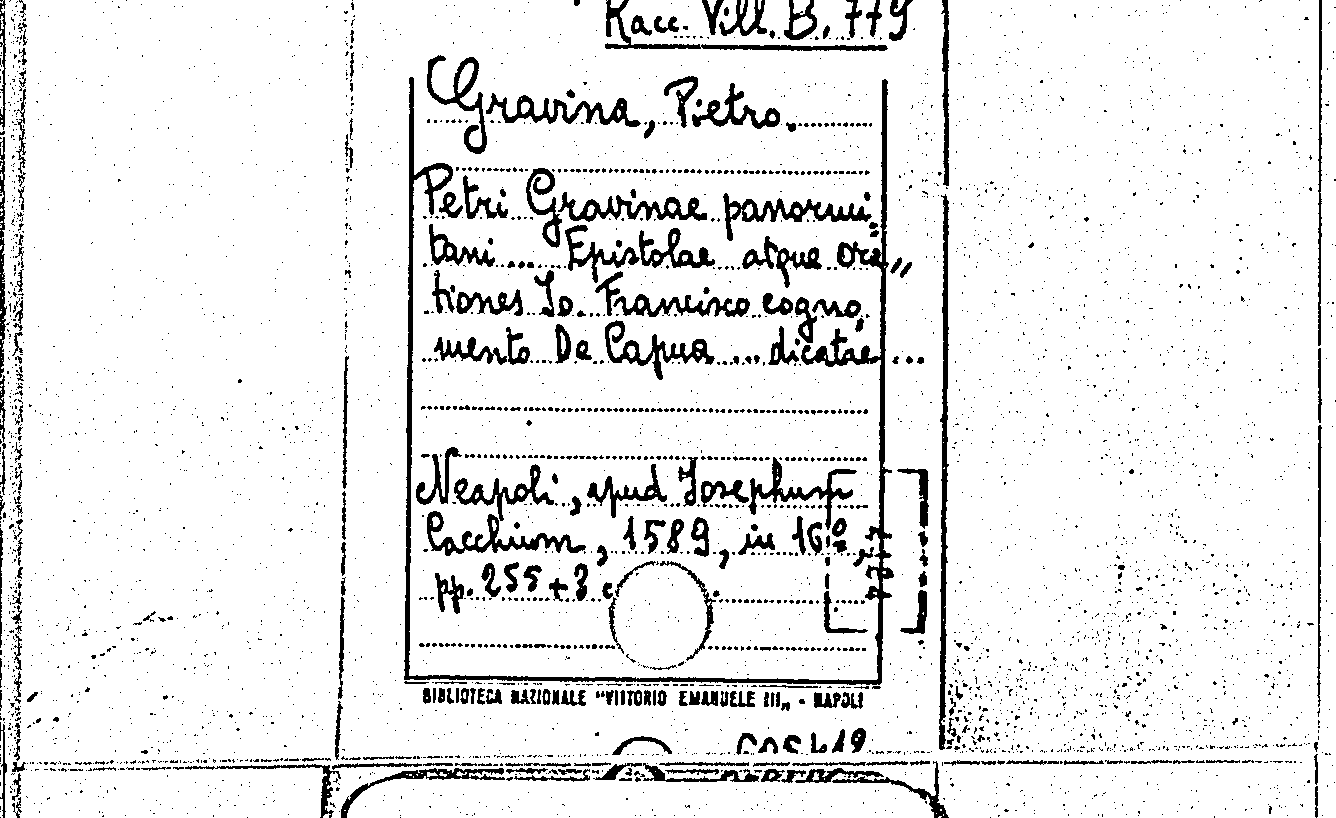 Racc. Vill. B. 779
Gravina, Pietro.
Petri Gravinae panormi=
tani... Epistolae atque ora„
tiones Io. Francisco cogno„
mento De Capua ... dicatae ...
Neapoli, apud Iosephum
Cacchium, 1589, in 16º,
pp. 255 + 3 c
BIBLIOTECA NAZIONALE "VITTORIO EMANUELE III„ - NAPOLI